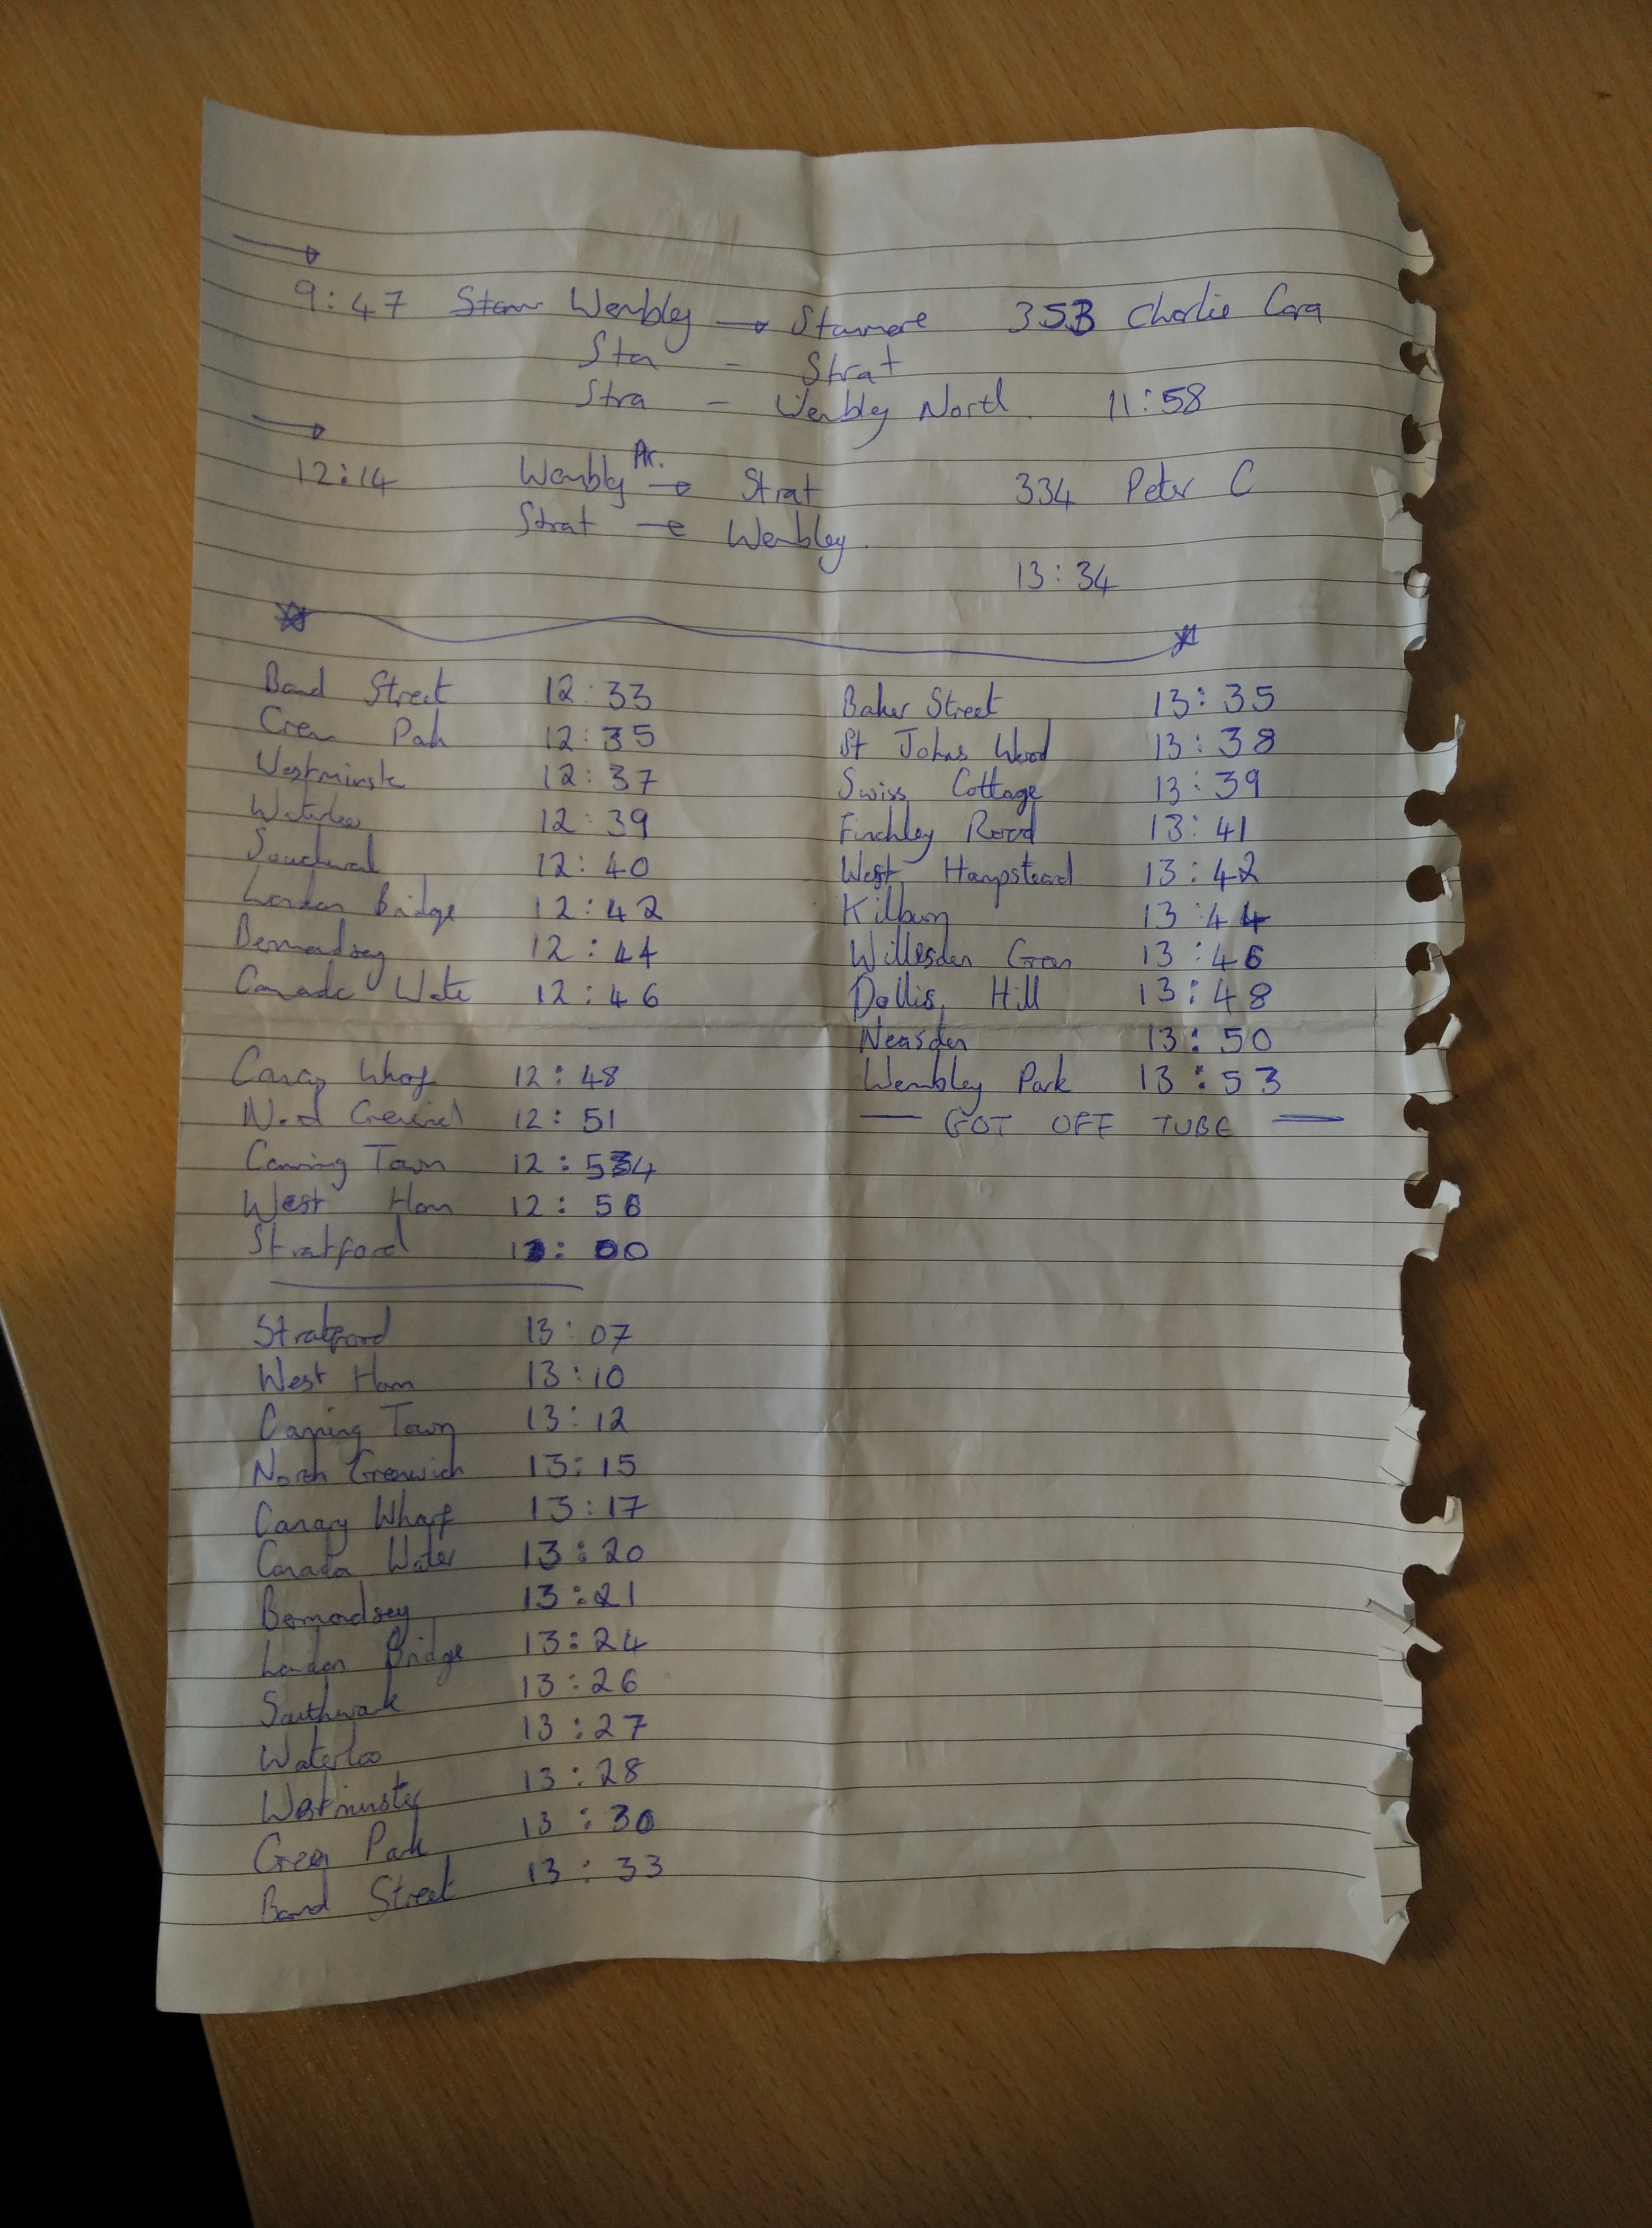 9:47 Stan Wembley → Stanmore 353 Charlie Cara
Sta - Strat
Stra - Wembley North. 11:58
12:14 Wembly Pk. → Strat 334 Peter C
Strat → Wembley.
13:34
Bond Street 12:33
Green Park 12:35
Westminste 12:37
Waterloo 12:39
Southwark 12:40
London Bridge 12:42
Bermondsey 12:44
Canada Wate 12:46
Canary Wharf 12:48
12:51
Canning Town 12:54
West Ham 12:56
Stratford 13:00
Stratford 13:07
West Ham 13:10
Canning Town 13:12
North Greenwich 13:15
Canary Wharf 13:17
Canada Water 13:20
Bermondsey 13:21
London Bridge 13:24
Southwark 13:26
Waterloo 13:27
Westminster 13:28
Green Park 13:30
Bond Street 13:33
Baker Street 13:35
St Johns Wood 13:38
Swiss Cottage 13:39
Finchley Road 13:41
West Hampstead 13:42
Kilburn 13:44
Willesden Green 13:46
Dollis Hill 13:48
Neasden 13:50
Wembley Park 13:53
— GOT OFF TUBE —